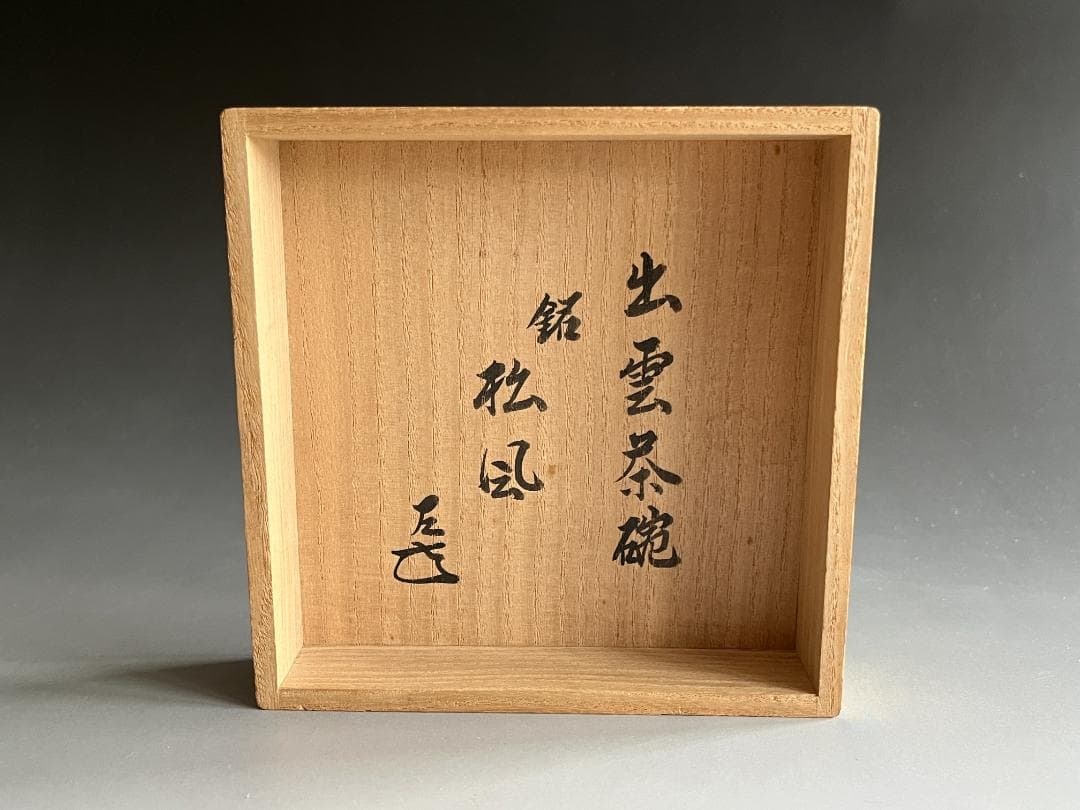 出雲茶碗
銘
松風